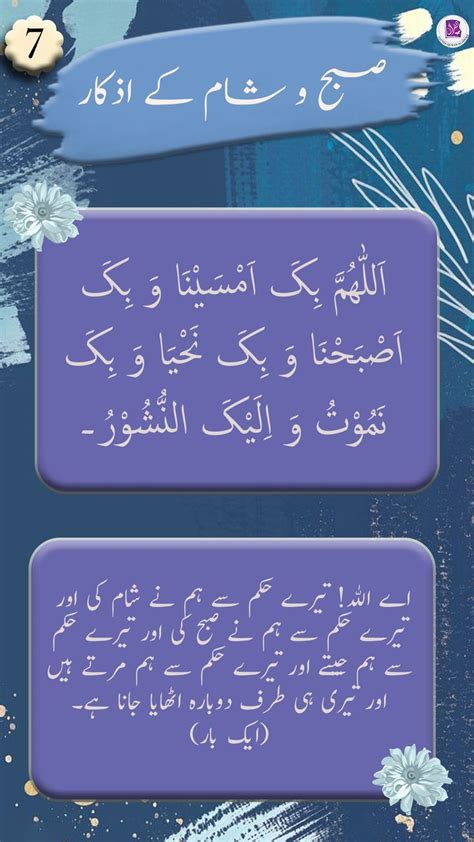 7
صبح و شام کے اذکار
اَللّٰهُمَّ بِکَ اَمْسَیْنَا وَ بِکَ
اَصْبَحْنَا وَ بِکَ نَحْیَا وَ بِکَ
نَمُوْتُ وَ اِلَیْکَ النُّشُوْرُ۔
اے اللہ! تیرے حکم سے ہم نے شام کی اور
تیرے حکم سے ہم نے صبح کی اور تیرے حکم
سے ہم جیتے اور تیرے حکم سے ہم مرتے ہیں
اور تیری ہی طرف دوبارہ اٹھایا جانا ہے۔
(ایک بار)